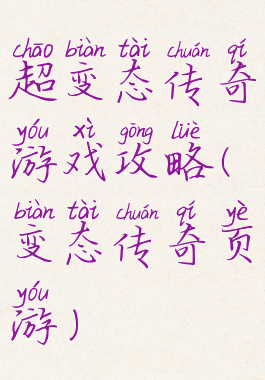 chāo biàn tài chuán qí
超变态传奇
yóu xì gōng lüè
游戏攻略(
biàn tài chuán qí yè
变态传奇页
yóu
游)